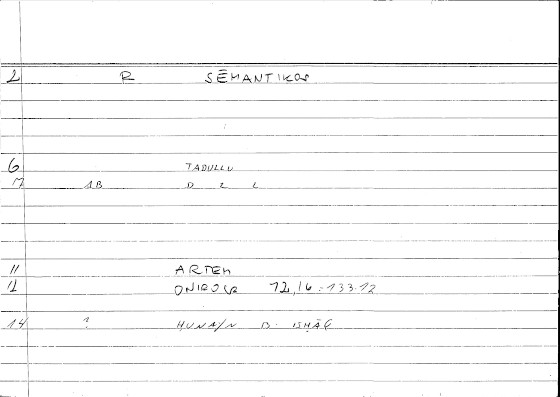 2 R SĒMANTIKOS
6 TADULLU
17 1B D L L
11 ARTEM
12 ONIROCR 12,16 = 133.12
14 ? HUNAIN B. ISHĀQ